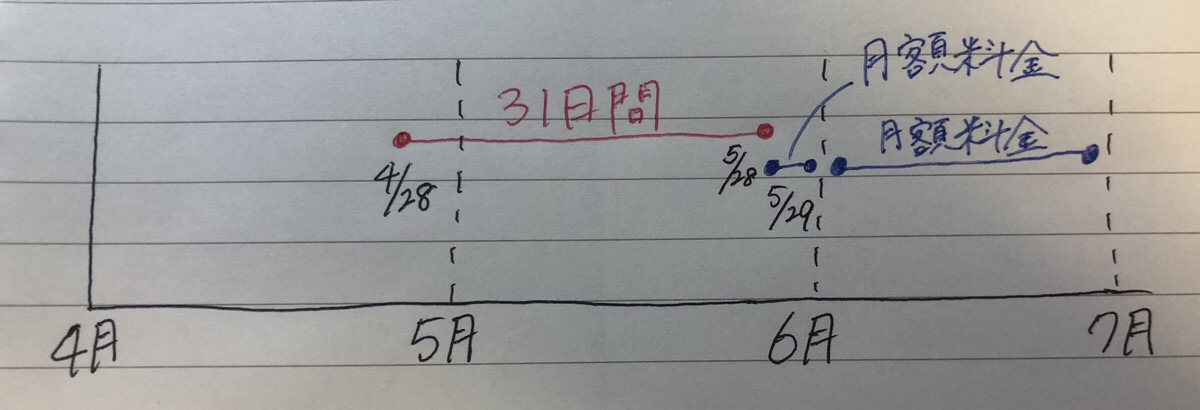 月額料金
31日間
月額料金
4/28
5/28
5/29
4月
5月
6月
7月